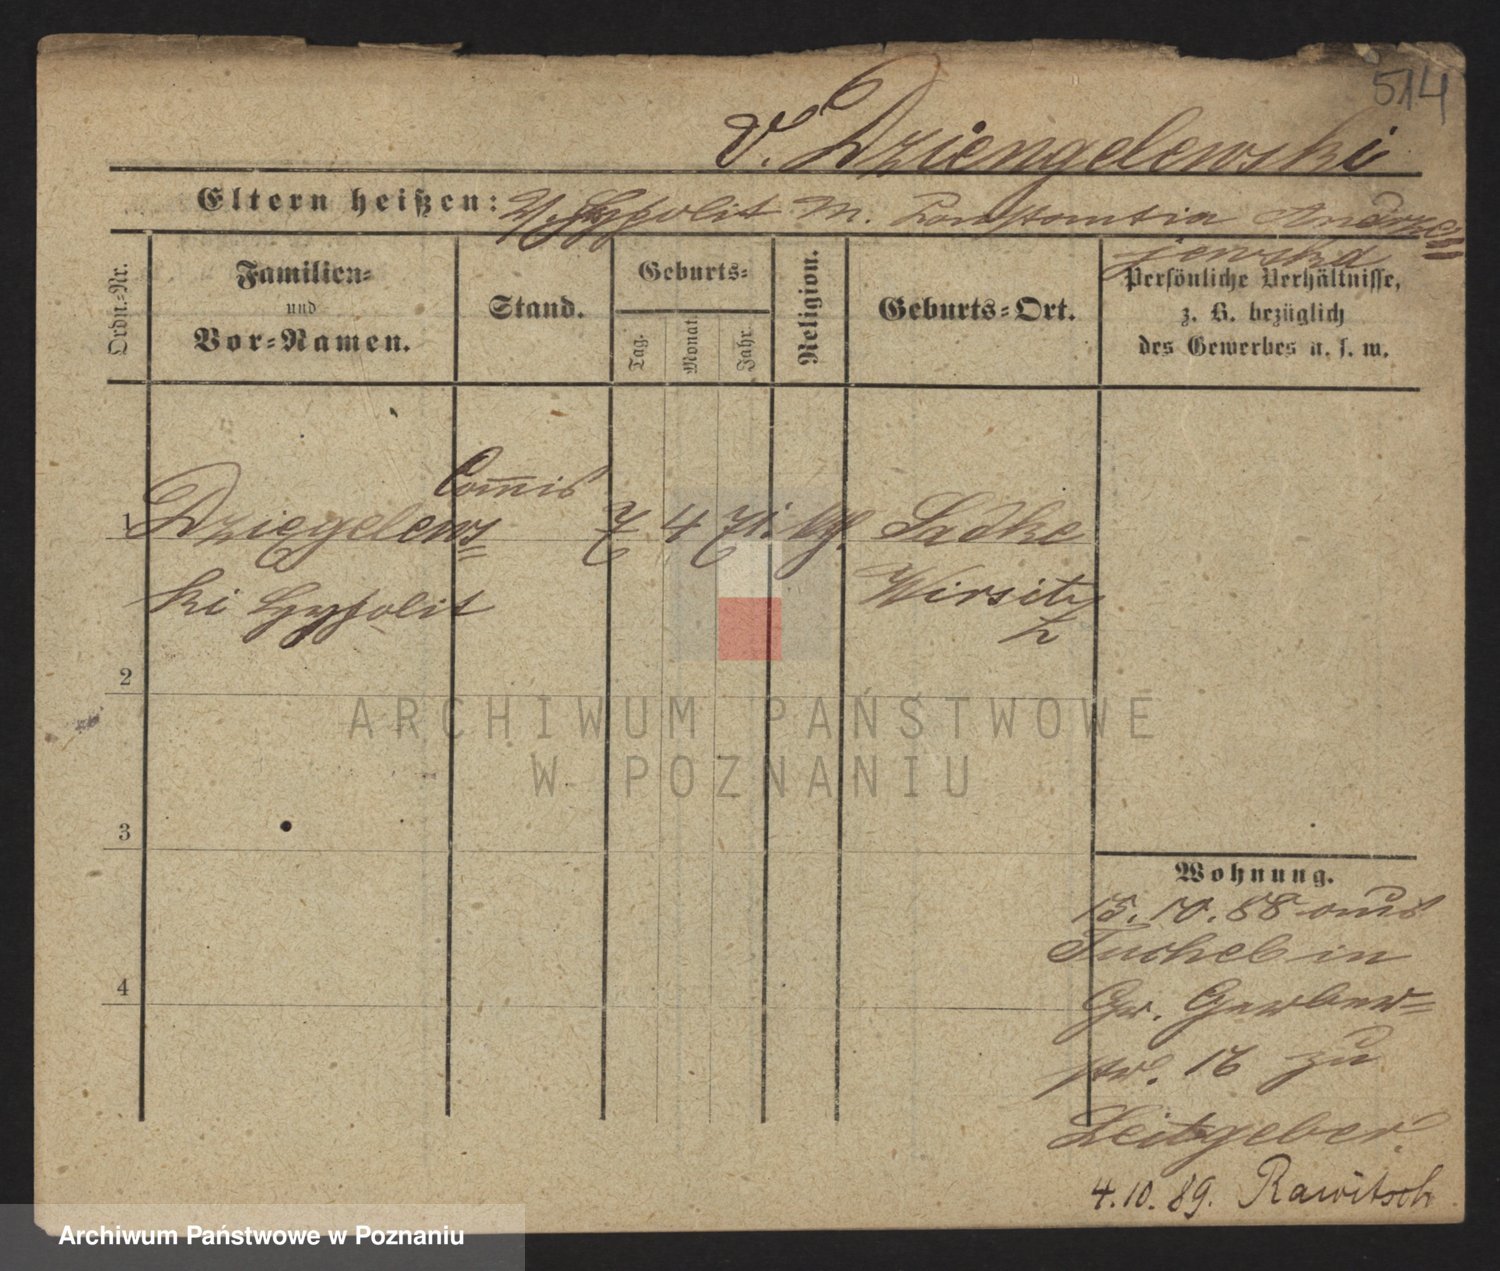 514
v. Dziengelewski
Eltern heißen: V. Hyppolit M. Konstantia Andrze=
jewska
Ordn.=Nr.
Familien=
und
Vor=Namen.
Stand.
Geburts=
Tag.
Monat.
Jahr.
Religion.
Geburts=Ort.
Persönliche Verhältnisse,
z. B. bezüglich
des Gewerbes u. s. w.
Com̅is
1 Dziegelews= 7 4 71. kth. Sadke
ki Hyppolit Wirsitz
2
3
4
ARCHIWUM PAŃSTWOWE
W POZNANIU
Wohnung.
15.10.88 aus
Tuchel in
Gr. Gerber=
str. 16 zu
Zeitgeber.
4.10.89. Rawitsch
Archiwum Państwowe w Poznaniu